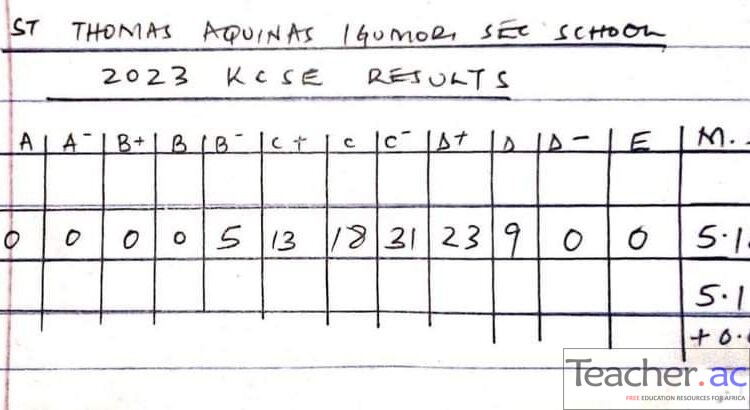 ST THOMAS AQUINAS IGUMORI SEC SCHOOL
2023 KCSE RESULTS
A A- B+ B B- C+ C C- D+ D D- E M.
0 0 0 0 5 13 18 31 23 9 0 0 5.1
5.1
+0.
Teacher.ac
FREE EDUCATION RESOURCES FOR AFRICA